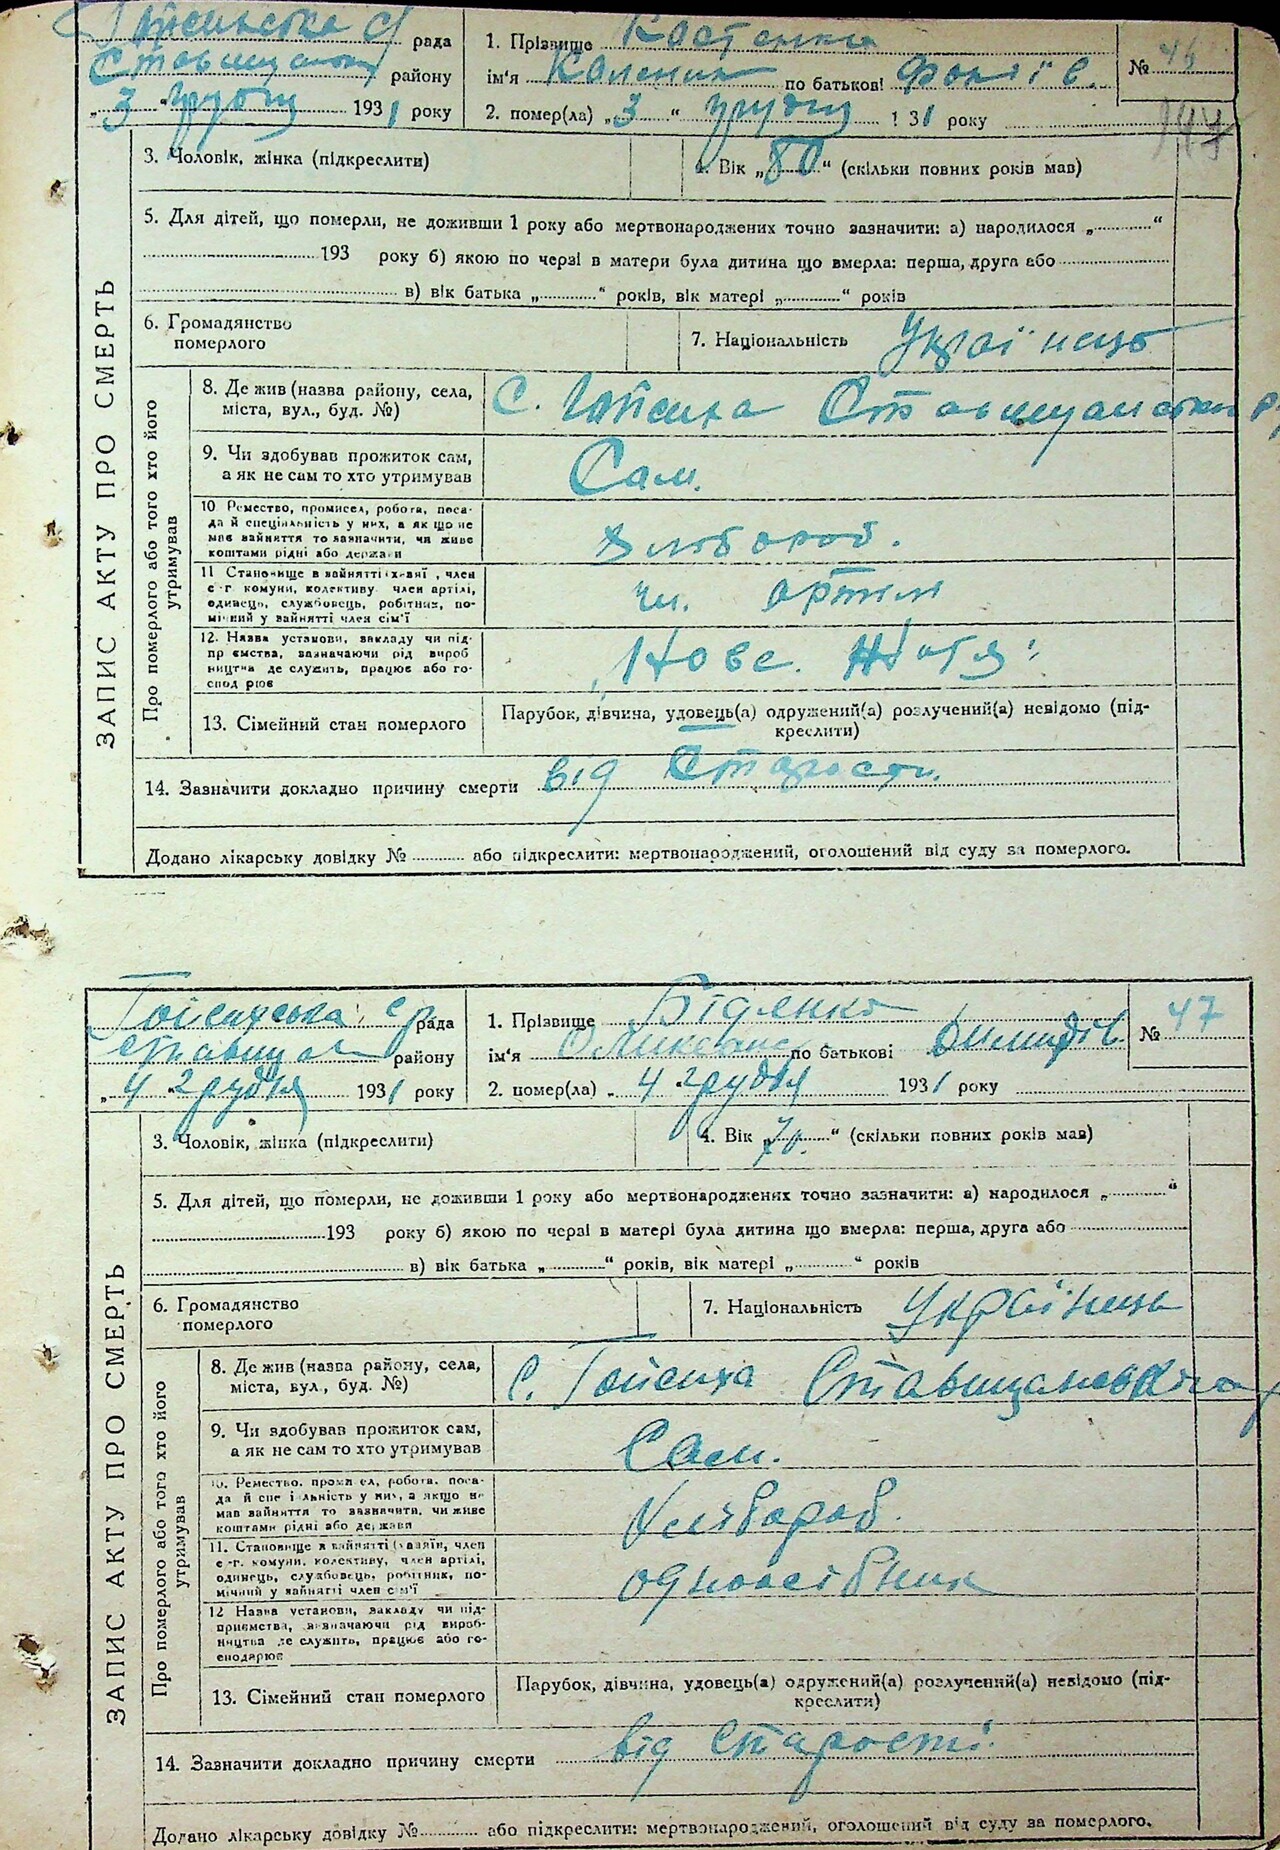 Гойсинська с/ рада
Ставищансь району
„3 " грудня 1931 року
1. Прізвище Костенко
ім'я Каленик по батькові Фокіїв.
2. помер(ла) „3 " грудня 131 року
№ 46
147
ЗАПИС АКТУ ПРО СМЕРТЬ
3. Чоловік, жінка (підкреслити)
4. Вік „80" (скільки повних років мав)
5. Для дітей, що померли, не доживши 1 року або мертвонароджених точно зазначити: а) народилося „ "
193 року б) якою по черзі в матери була дитина що вмерла: перша, друга або
в) вік батька „ " років, вік матері „ " років
6. Громадянство
померлого
7. Національність Україиець
Про померлого або того хто його
утримував
8. Де жив (назва району, села,
міста, вул., буд. №)
С. Гойсиха Ставищанського р,
9. Чи здобував прожиток сам,
а як не сам то хто утримував
Сам.
10 Ремество, промисел, робота, поса-
да й спеціяльність у них, а як що не
має зайняття то зазначити, чи живе
коштами рідні або держави
Хлібороб.
11 Становище в зайнятті (хазяї , член
с-г. комуни, колективу член артілі,
одинець, службовець, робітник, по-
мічний у зайнятті член сім'ї
чл. артіли
12. Назва установи, закладу чи під-
пр ємства, зазначаючи рід вироб
ництва де служить, працює або го-
спод рює
„Нове. Життя"
13. Сімейний стан померлого
Парубок, дівчина, удовець(а) одружений(а) розлучений(а) невідомо (під-
креслити)
14. Зазначити докладно причину смерти від Старости.
Додано лікарську довідку № або підкреслити: мертвонароджений, оголошений від суду за померлого.
Гойсиська с рада
Ставищан району
„4 " грудня 1931 року
1. Прізвище Біденко
ім'я Оликсанс по батькові Димидів
2. помер(ла) „ 4 " грудня 1931 року
№ 47
ЗАПИС АКТУ ПРО СМЕРТЬ
3. Чоловік, жінка (підкреслити)
4. Вік „70." (скільки повних років мав)
5. Для дітей, що померли, не доживши 1 року або мертвонароджених точно зазначити: а) народилося „ "
193 року б) якою по черзі в матері була дитина що вмерла: перша, друга або
в) вік батька „ " років, вік матері „ " років
6. Громадянство
померлого
7. Національність Українець
Про померлого або того хто його
утримував
8. Де жив (назва району, села,
міста, вул., буд. №)
с. Гойсиха Ставищановкого
9. Чи здобував прожиток сам,
а як не сам то хто утримував
Сам.
10. Ремество, промисел, робота, поса-
да й спеціяльність у них, а якщо не
мав зайняття то зазначити, чи живе
коштами рідні або держави
Хлібороб.
11. Становище в зайнятті (хазяїн, член
с-г. комуни, колективу, член артілі,
одинець, службовець, робітник, по-
мічний у зайнятті член сім'ї
одноосібник
12 Назва установи, закладу чи під-
приємства, зазначаючи рід вироб-
ництва де служить, працює або го-
сподарює
13. Сімейний стан померлого
Парубок, дівчина, удовець(а) одружений(а) розлучений(а) невідомо (під-
креслити)
14. Зазначити докладно причину смерти від старости.
Додано лікарську довідку № або підкреслити: мертвонароджений, оголошений від суду за померлого.